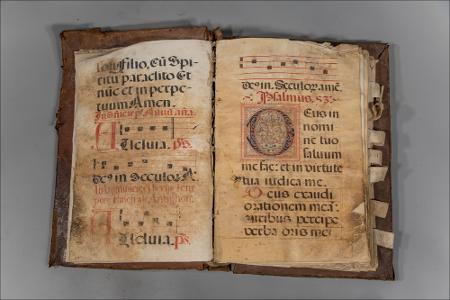 Filio, Cũ Spi-
ritu paraclito Et
nũc et in perpe
tuum Amen.
Alleluia. ps.
in Seculor A.
Alleluia. ps.
in. Seculor amē.
Psalmus. 53.
Deus in
nomi
ne tuo
saluum
me fac: et in virtute
tua iudica me.
Deus exaudi
orationem mea:
auribus percipe
verba oris mei